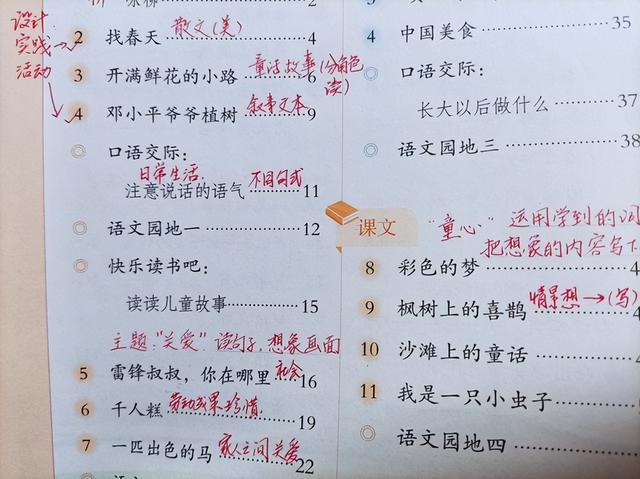 设计
实践
活动
2 找春天 散文(美) 4
3 开满鲜花的小路 童话故事(分角色读) 6
4 邓小平爷爷植树 叙事文本 9
口语交际:
日常生活.
注意说话的语气 不同句式 11
语文园地一 12
快乐读书吧:
读读儿童故事 15
主题:"关爱" 读句子,想象画面
5 雷锋叔叔,你在哪里 社会 16
6 千人糕 劳动成果珍惜 19
7 一匹出色的马 家人之间关爱 22
35
4 中国美食
口语交际:
长大以后做什么 37
语文园地三 38
课文
"童心" 运用学到的词
把想象的内容写下
8 彩色的梦 4
9 枫树上的喜鹊 情景想→(写) 4
10 沙滩上的童话
11 我是一只小虫子
语文园地四